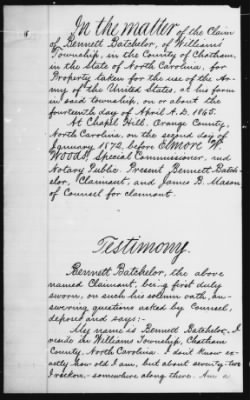 In the matter of the Claim
of Bennett Batchelor, of Williams
Township, in the County of Chatham,
in the State of North Carolina, for
Property taken for the use of the Ar-
my of the United States, at his farm
in said township, on or about the
fourteenth day of April A.D. 1865.
At Chapel Hill, Orange County,
North Carolina, on the second day of
January 1872, before Elmore W.
Woods, Special Commissioner, and
Notary Public. Present Bennett Batch-
elor, Claimant, and James B. Mason
of Counsel for claimant.
Testimony.
Bennett Batchelor, the above
named Claimant, being first duly
sworn, on such his solemn oath, an-
swering questions asked by Counsel,
deposed and says:-
My name is Bennett Batchelor. I
reside in Williams Township, Chatham
County, North Carolina. I don't know ex-
actly how old I am, but about seventy-two
I reckon, somewhere along there. Am a